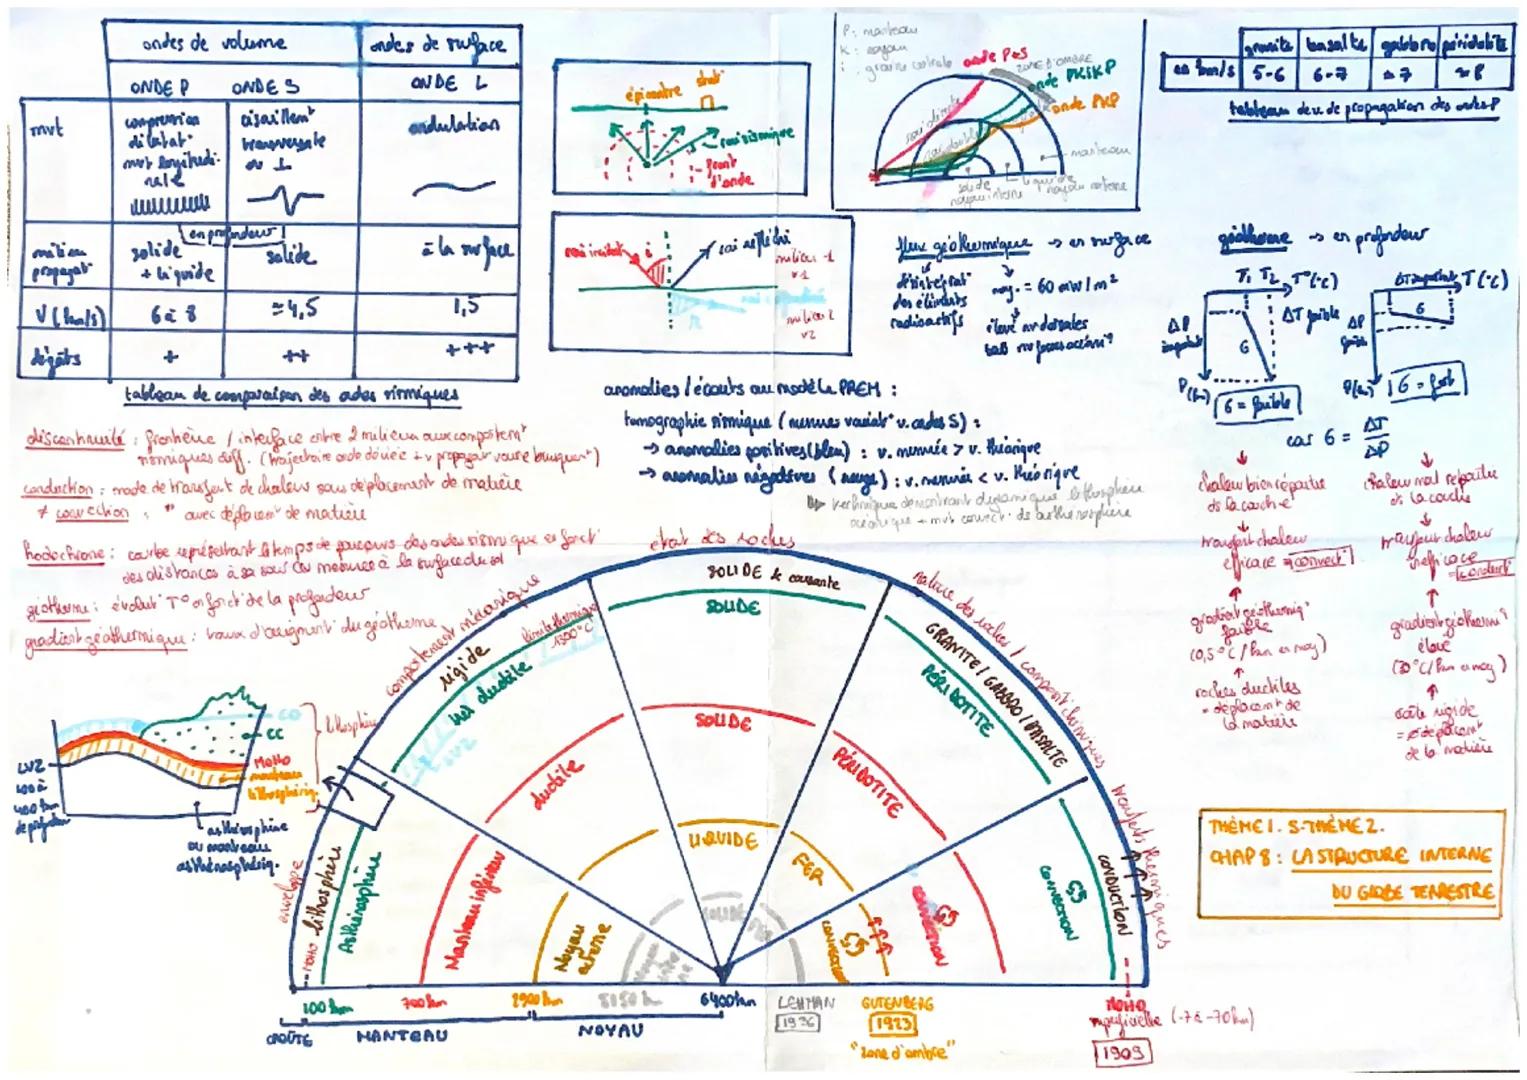 ondes de volume
ondes de surface
ONDE P
ONDE S
ONDE L
mvt
compression
dilatat°
mvt longitudi-
nale
cisaillemt
transversale
ou ⊥
ondulation
en profondeur !
milieu
propagat°
solide
+ liquide
solide
à la surface
V (km/s)
6 à 8
≈ 4,5
1,5
dégâts
+
++
+++
tableau de comparaison des ondes sismiques
épicentre
stat°
rai sismique
front
d'onde
rai incident
i
rai réfléchi
milieu 1
v1
milieu 2
v2
P : manteau
K : noyau
i : graine centrale
onde P+S
ZONE D'OMBRE
onde PKiKP
onde PKP
rai directe
manteau
solide
noyau interne
liquide
noyau externe
granite
basalte
gabbro
péridotite
en km/s
5-6
6-7
≈ 7
≈ 8
tableau de v. de propagation des ondes P
flux géothermique → en surface
désintégrat°
des éléments
radioactifs
moy. = 60 mW/m²
élevé av dorsales
bas av fosses océaniq
géotherme → en profondeur
T1 T2 T°(°C)
ΔT faible
ΔP
importante
G
P(km)
G = faible
ΔT importante T(°C)
ΔP
faible
G
P(km)
G = fort
car G = ΔT
ΔP
chaleur bien répartie
ds la couche
transfert chaleur
efficace = convect°
gradient géothermiq
faible
(0,5°C/km en moy)
roches ductiles
= déplacemt de
la matière
chaleur mal répartie
ds la couche
transfert chaleur
inefficace
= conduct°
gradient géothermiq
élevé
(30°C/km en moy)
croûte rigide
= ø déplacemt
de la matière
anomalies / écarts au modèle PREM :
tomographie sismique ( mesures variat° v. ondes S) :
→ anomalies positives (bleu) : v. mesurée > v. théorique
→ anomalies négatives (rouge) : v. mesurée < v. théorique
technique démontrant dynamique lithosphère
océanique + mvt convect° ds asthénosphère
discontinuité : frontière / interface entre 2 milieux aux comportemt
sismiques diff. (trajectoire onde déviée + v propagat° varie brusquemt)
conduction : mode de transfert de chaleur sans déplacement de matière
≠ convection : " avec déplacemt de matière
hodochrone : courbe représentant le temps de parcours des ondes sismique en fonct°
des distances à sa source mesurées à la surface du sol
géotherme : évolut° T° en fonct° de la profondeur
gradient géothermique : taux d'augment° du géotherme
CO
CC
MOHO
manteau
lithosphériq.
lithosphère
LVZ
100 à
400 km
de profondeur
asthénosphère
ou manteau
asthénosphériq.
état des roches
comportement mécanique
nature des roches / composit° chimiques
transferts thermiques
enveloppe
rigide
limite thermique
1300°C
ductile
LVZ
SOLIDE & cassante
SOLIDE
GRANITE / GABBRO / BASALTE
PÉRIDOTITE
ductile
SOLIDE
PÉRIDOTITE
LIQUIDE
FER
SOLIDE
FER
MOHO
lithosphère
Asthénosphère
Manteau inférieur
Noyau
externe
Noyau
interne
CONVECTION
CONVECTION
CONVECTION
CONDUCTION
100 km
700 km
2900 km
5150 km
6400 km
CROÛTE
MANTEAU
NOYAU
LEHMAN
1936
GUTENBERG
1923
"zone d'ombre"
MOHO
superficielle (-7 à -70 km)
1909
THÈME 1. S-THÈME 2.
CHAP 8 : LA STRUCTURE INTERNE
DU GLOBE TERRESTRE